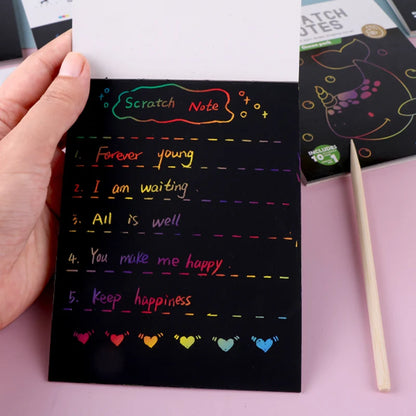 SCRATCH
NOTES
Scratch Note
1. Forever young
2. I am waiting.
3. All is well
4. You make me happy.
5. Keep happiness
INCLUDES: